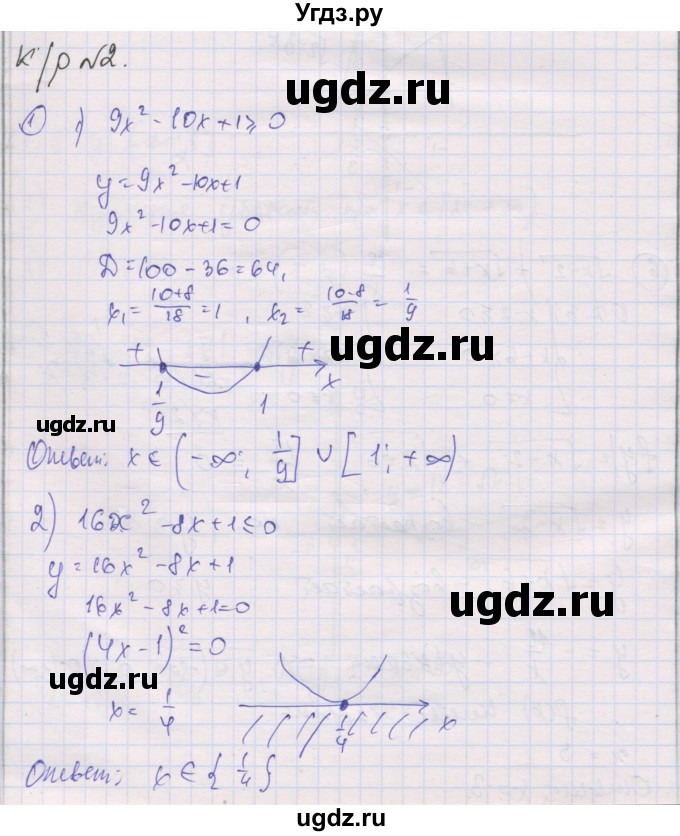 Угдз.ру
К/р №2.
ugdz.ru
① 1) 9x² - 10x + 1 ≥ 0
y = 9x² - 10x + 1
9x² - 10x + 1 = 0
D = 100 - 36 = 64,
x₁ = (10+8)/18 = 1, x₂ = (10-8)/18 = 1/9
ugdz.ru
+ - + x
1/9 1
ugdz.ru
Ответ: x ∈ (-∞; 1/9] ∪ [1; +∞)
2) 16x² - 8x + 1 ≤ 0
y = 16x² - 8x + 1
ugdz.ru
16x² - 8x + 1 = 0
(4x - 1)² = 0
ugdz.ru
x = 1/4
1/4 x
Ответ: x ∈ {1/4}
ugdz.ru
Угдз.ру